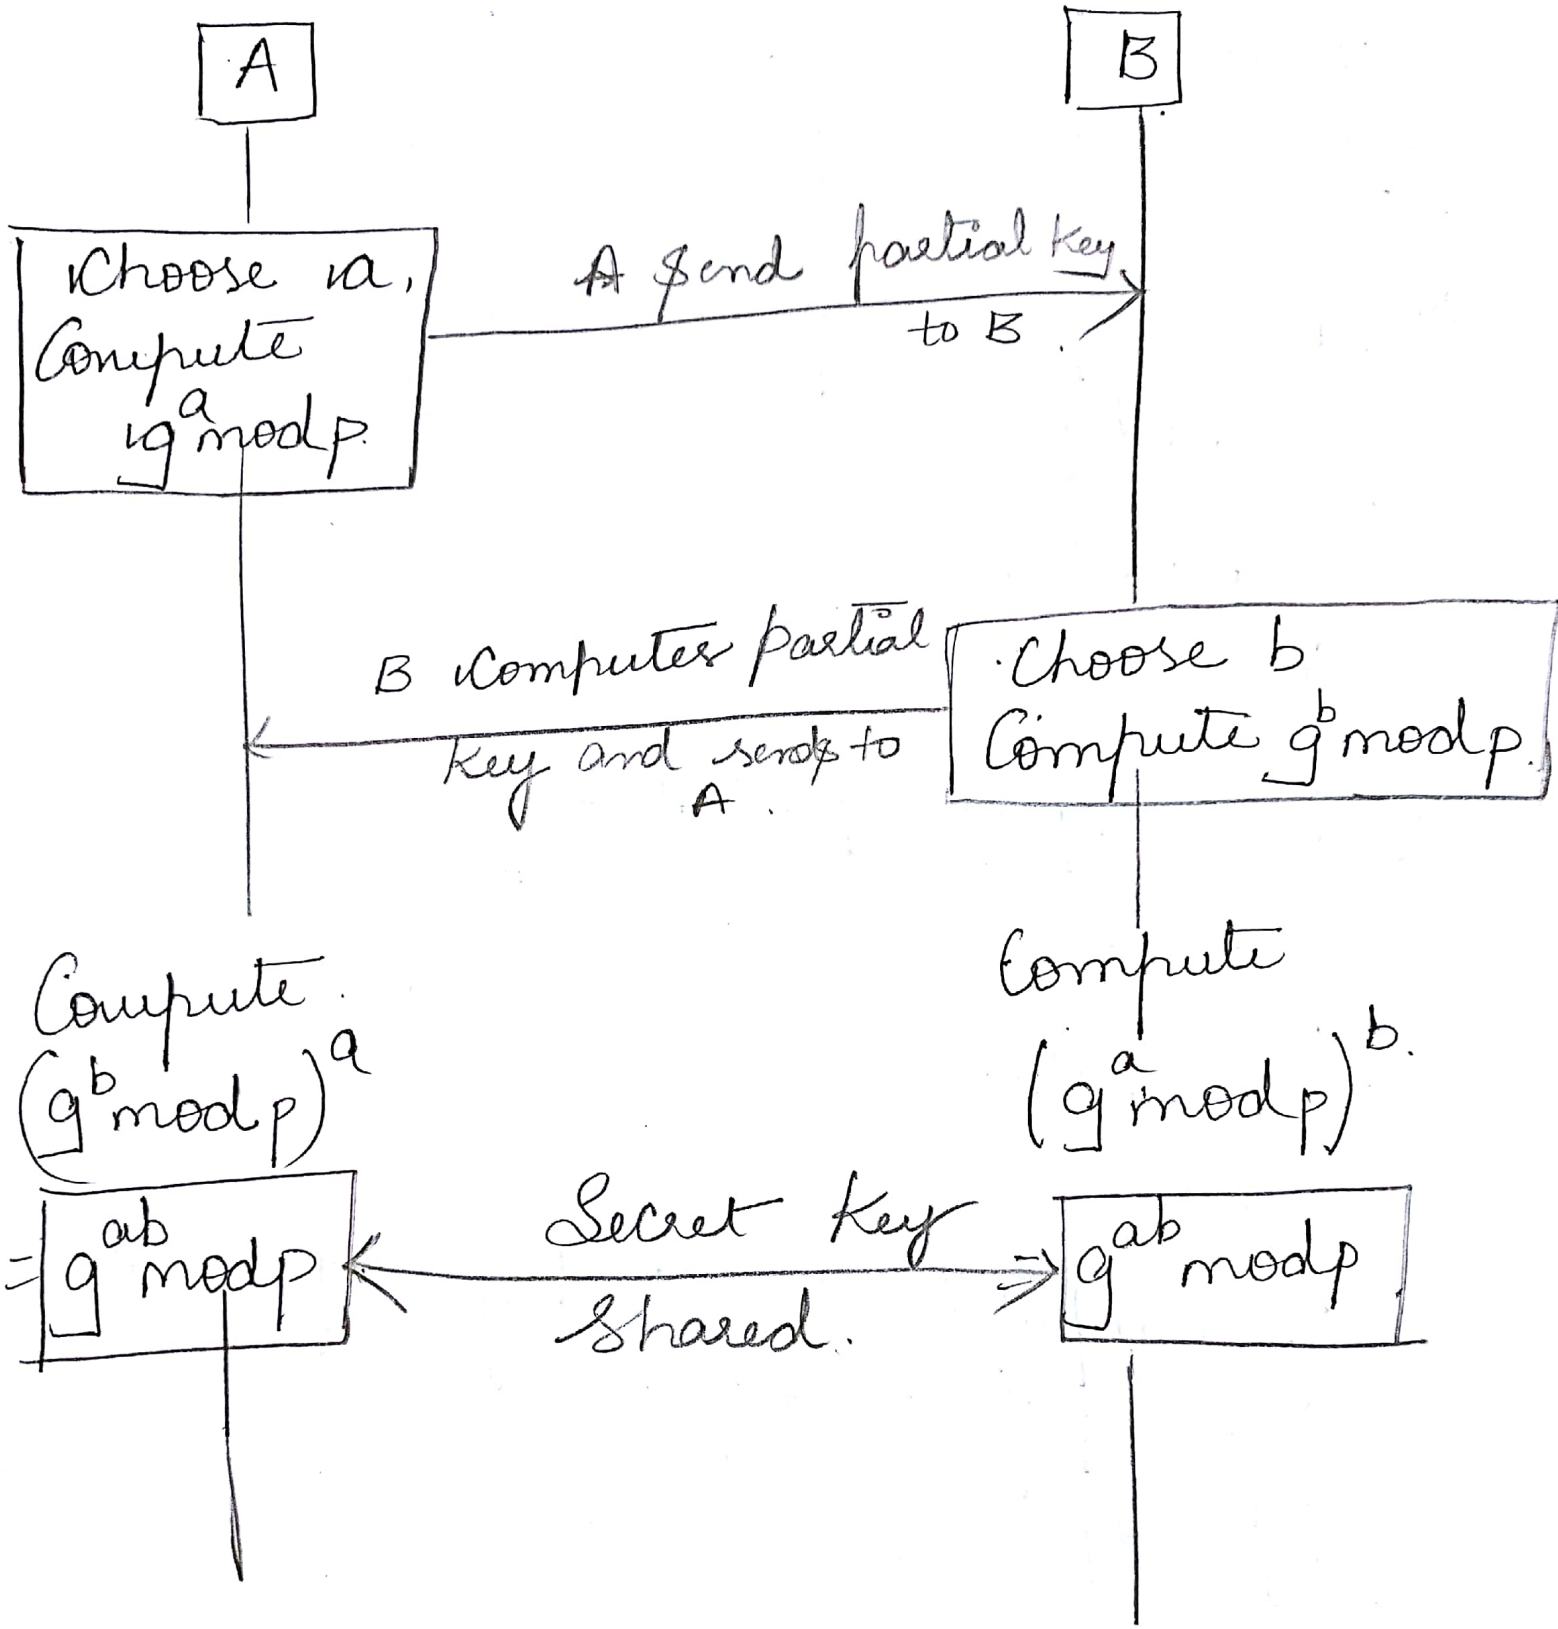 A
B
Choose a,
Compute
g^a mod p.
A Send partial key
to B.
B Computes partial
key and sends to
A.
Choose b
Compute g^b mod p.
Compute
(g^b mod p)^a
Compute
(g^a mod p)^b.
= g^ab mod p
Secret Key
Shared.
= g^ab mod p